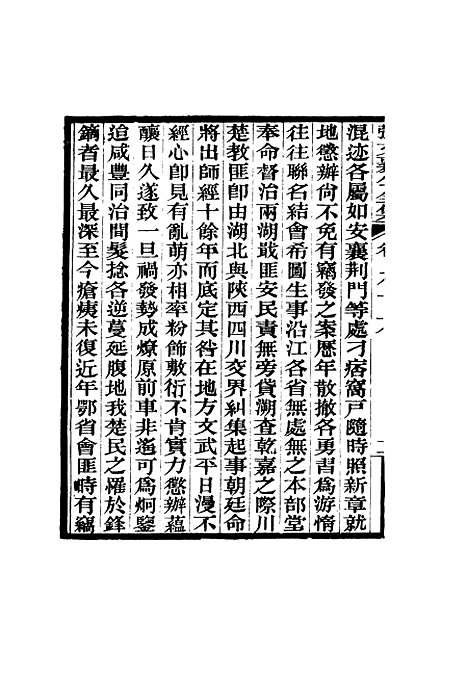 混迹各屬如安襄荆門等處刁痞窩戸隨時照新章就
地懲辦尙不免有竊發之案歷年散撤各勇書爲游惰
往往聯名結會希圖生事沿江各省無處無之本部堂
奉命督治兩湖戢匪安民責無旁貸溯查乾嘉之際川
楚教匪卽由湖北與陝西四川交界糾集起事朝廷命
將出師經十餘年而底定其咎在地方文武平日漫不
經心卽見有亂萌亦相率粉飾敷衍不肯實力懲辦蘊
釀日久遂致一旦禍發勢成燎原前車非遙可爲炯鑒
迨咸豐同治間髮捻各逆蔓延腹地我楚民之罹於鋒
鏑者最久最深至今瘡痍未復近年鄂省會匪時有竊